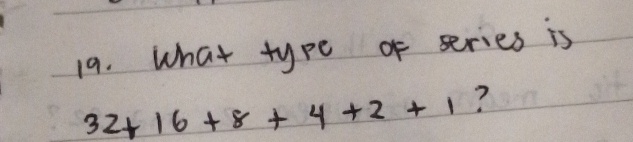 19. What type of series is
32+ 16 + 8 + 4 + 2 + 1?